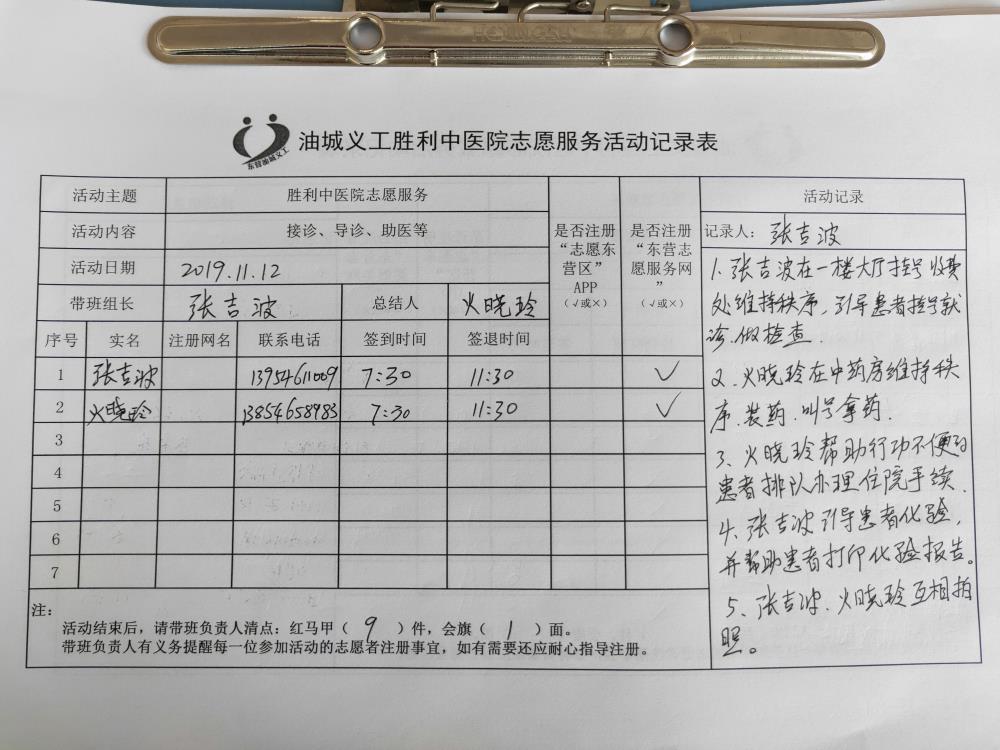 HONGSU
东营油城义工
油城义工胜利中医院志愿服务活动记录表
活动主题 胜利中医院志愿服务
活动内容 接诊、导诊、助医等
活动日期 2019.11.12
带班组长 张吉波 总结人 火晓玲
是否注册“志愿东营区”APP（√或×）
是否注册“东营志愿服务网”（√或×）
序号 实名 注册网名 联系电话 签到时间 签退时间
1 张吉波 13954611009 7:30 11:30 √
2 火晓玲 13854658983 7:30 11:30 √
3
4
5
6
7
注：
活动结束后，请带班负责人清点：红马甲（ 9 ）件，会旗（ 1 ）面。
带班负责人有义务提醒每一位参加活动的志愿者注册事宜，如有需要还应耐心指导注册。
活动记录
记录人： 张吉波
1、张吉波在一楼大厅挂号收费
处维持秩序，引导患者挂号就
诊、做检查．
2、火晓玲在中药房维持秩
序、装药、叫号拿药．
3、火晓玲帮助行动不便的
患者排队办理住院手续．
4、张吉波引导患者化验，
并帮助患者打印化验报告。
5、张吉波、火晓玲互相拍
照。